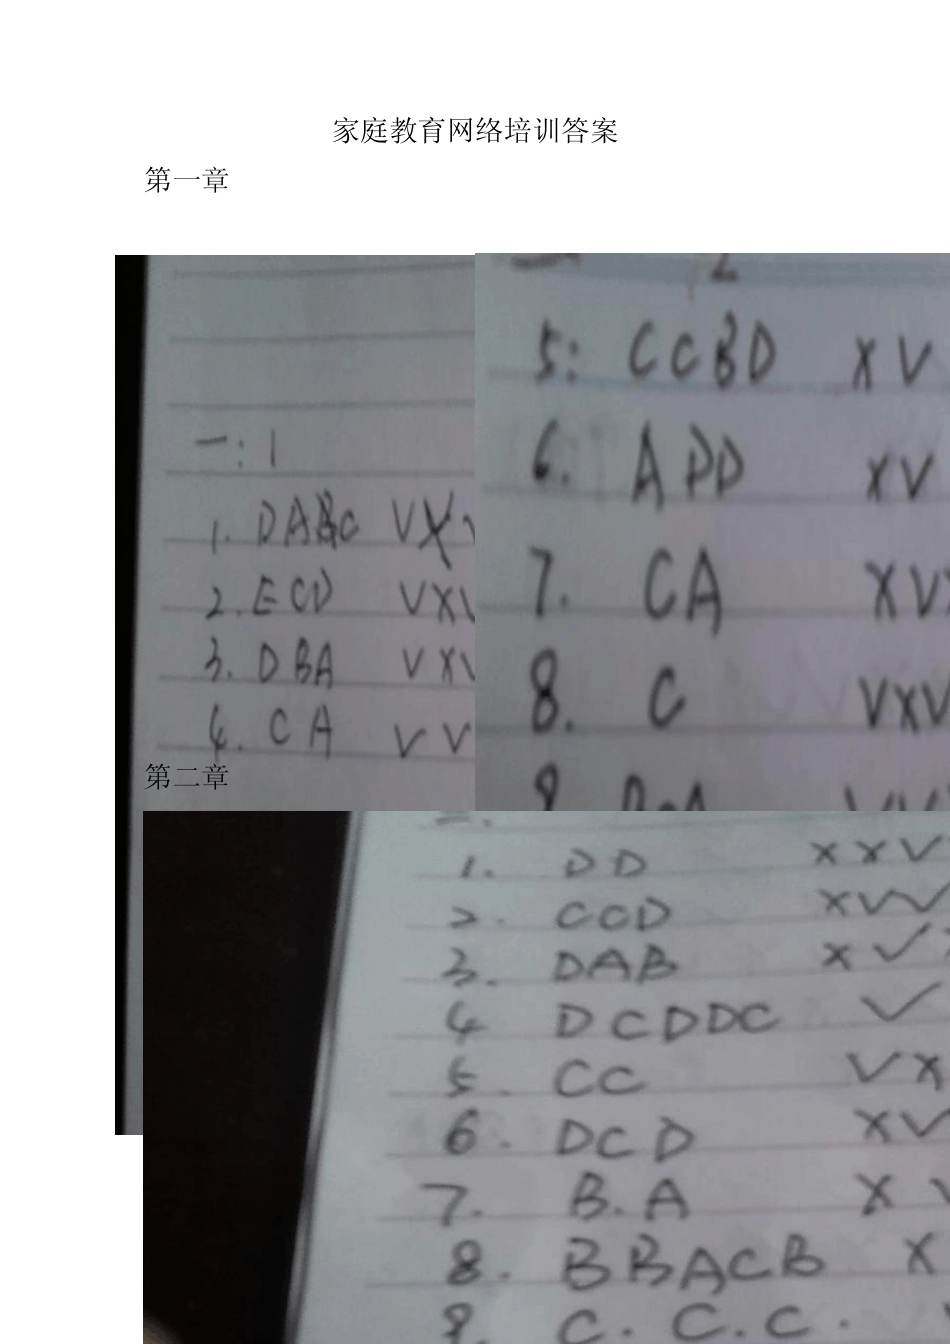 家庭教育网络培训答案
第一章
一:1
1. DABC V X
2. ECD V X V
3. DBA V X V
4. CA V V
2
5: CCBD X V
6. ADD X V
7. CA X V
8. C V X V
9
第二章
1. DD X X V
2. CCD X V V
3. DAB X V
4 DCDDC V
5. CC V X
6. DCD X V
7. B.A X
8. BBACB X
9. C. C. C.